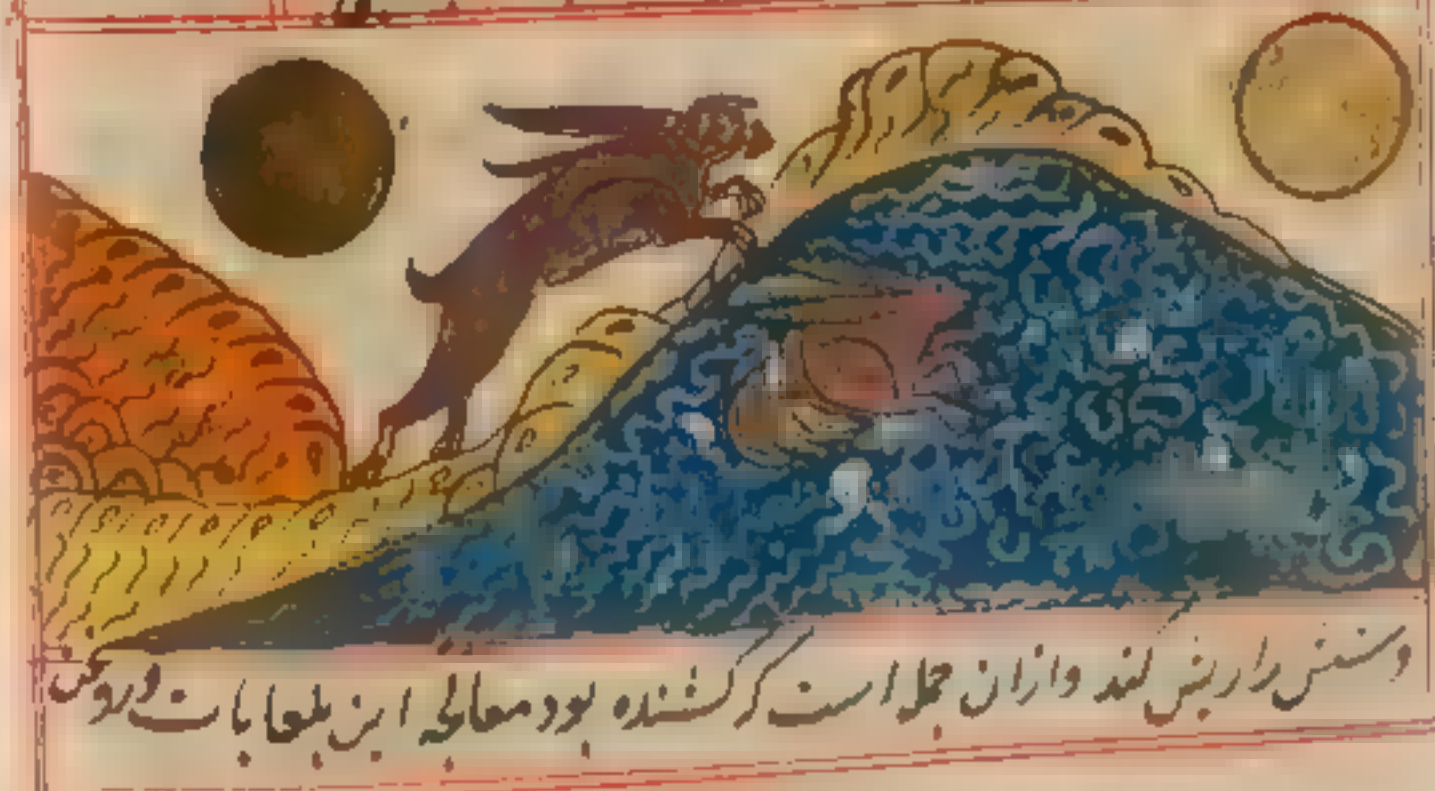 دستش را ریش کند و ازان جمله است کر کشنده بود معالجه این بلعابات و روغن